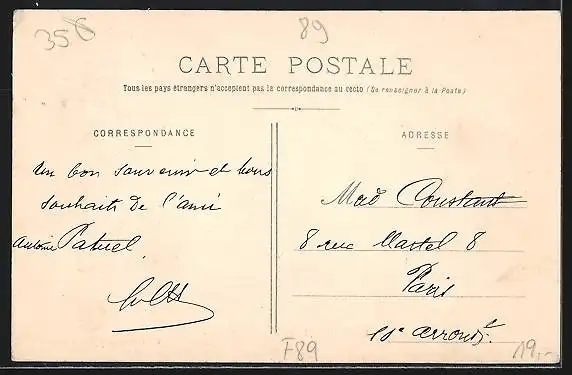 358
89
CARTE POSTALE
Tous les pays étrangers n'acceptent pas la correspondance au recto (Se renseigner à la Poste)
CORRESPONDANCE
Un bon souvenir et bons
souhaits de l'ami
Antoine Patuel
ADRESSE
Mad Constant
8 rue Martel 8
Paris
10e arrondt.
F89
19,-